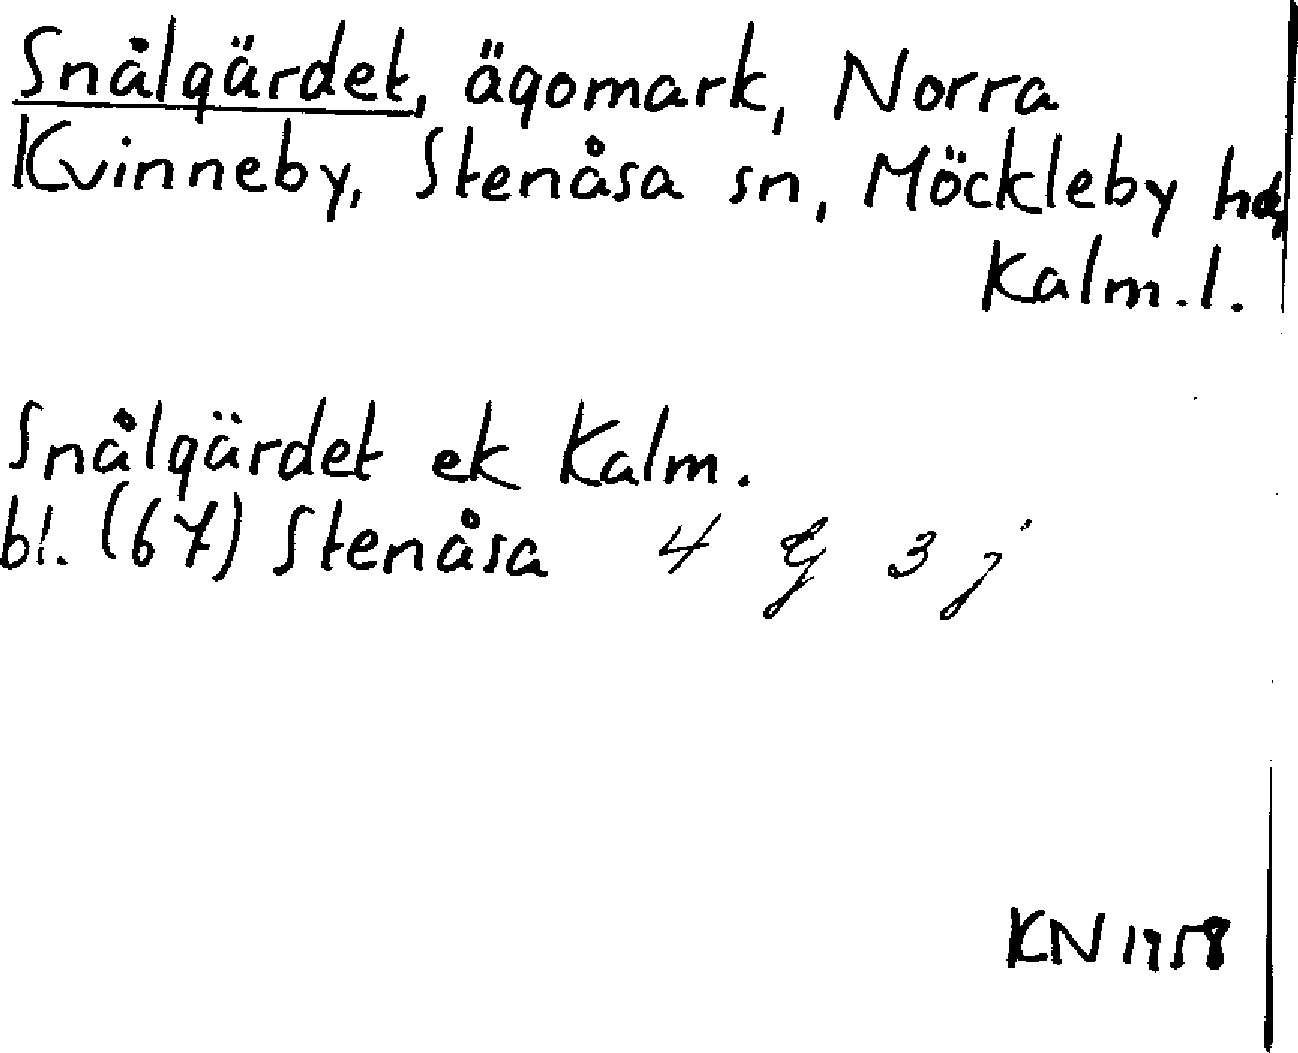 Snålgärdet, ägomark, Norra
Kvinneby, Stenåsa sn, Möckleby hd,
Kalm. l.
Snålgärdet ek Kalm.
bl. (67) Stenåsa 4 G 3 j
KN 1958